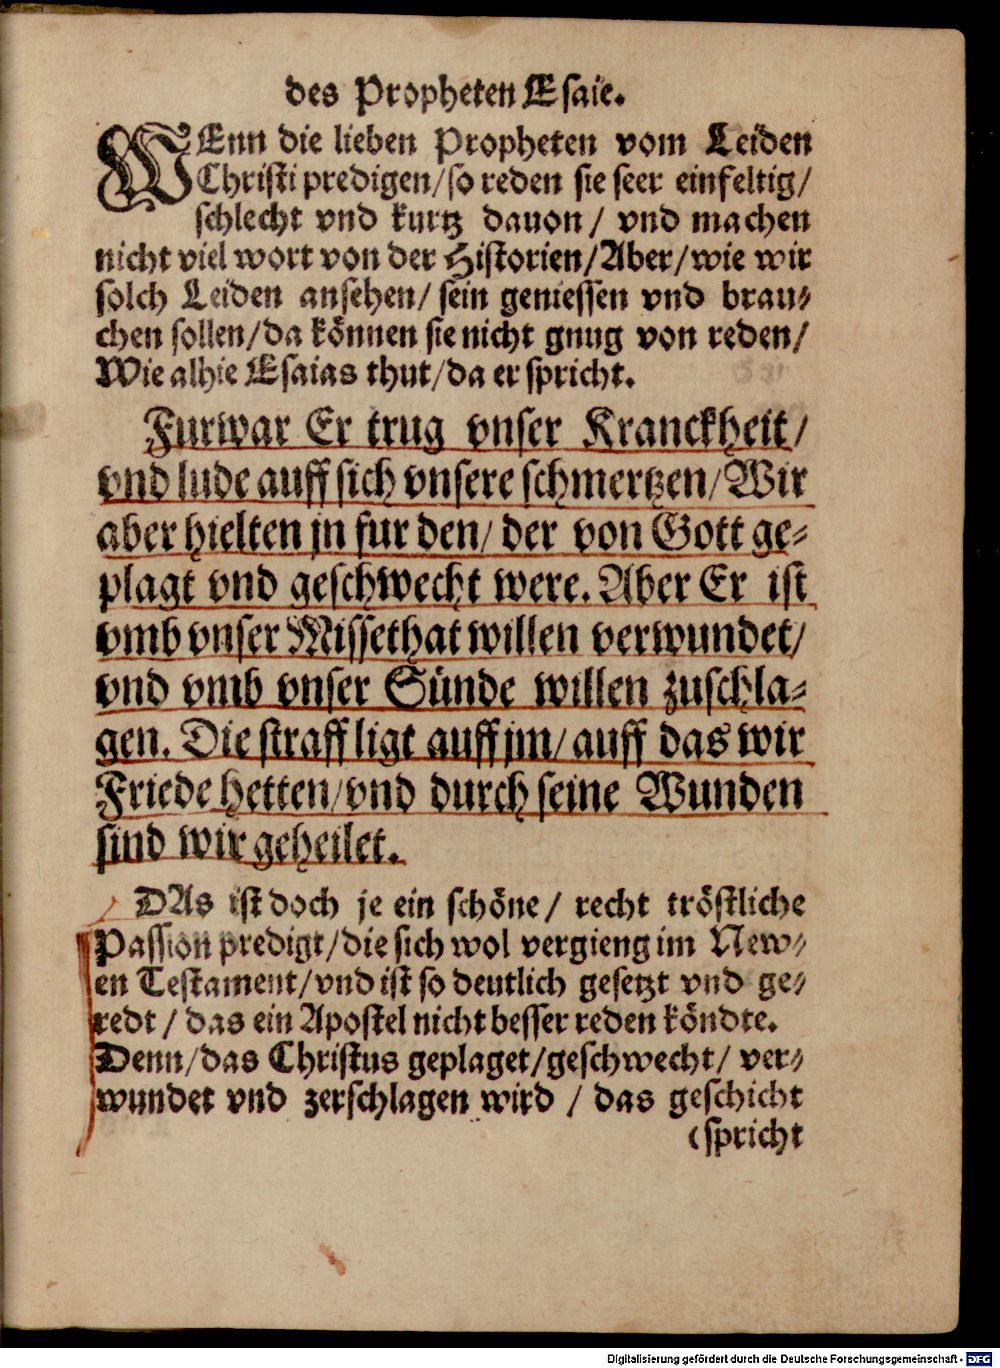 des Propheten Esaie.
WEnn die lieben Propheten vom Leiden
Christi predigen/ so reden sie seer einfeltig/
schlecht vnd kurtz dauon / vnd machen
nicht viel wort von der Historien/ Aber/ wie wir
solch Leiden ansehen/ sein geniessen vnd brau-
chen sollen/ da können sie nicht gnug von reden/
Wie alhie Esaias thut/ da er spricht.
Furwar Er trug vnser Kranckheit/
vnd lude auff sich vnsere schmertzen/ Wir
aber hielten jn fur den/ der von Gott ge-
plagt vnd geschwecht were. Aber Er ist
vmb vnser Missethat willen verwundet/
vnd vmb vnser Sünde willen zuschla-
gen. Die straff ligt auff jm/ auff das wir
Friede hetten/ vnd durch seine Wunden
sind wir geheilet.
DAs ist doch je ein schöne/ recht tröstliche
Passion predigt/ die sich wol vergieng im New-
en Testament/ vnd ist so deutlich gesetzt vnd ge-
redt / das ein Apostel nicht besser reden köndte.
Denn/ das Christus geplaget/ geschwecht/ ver-
wundet vnd zerschlagen wird / das geschicht
(spricht
Digitalisierung gefördert durch die Deutsche Forschungsgemeinschaft - DFG